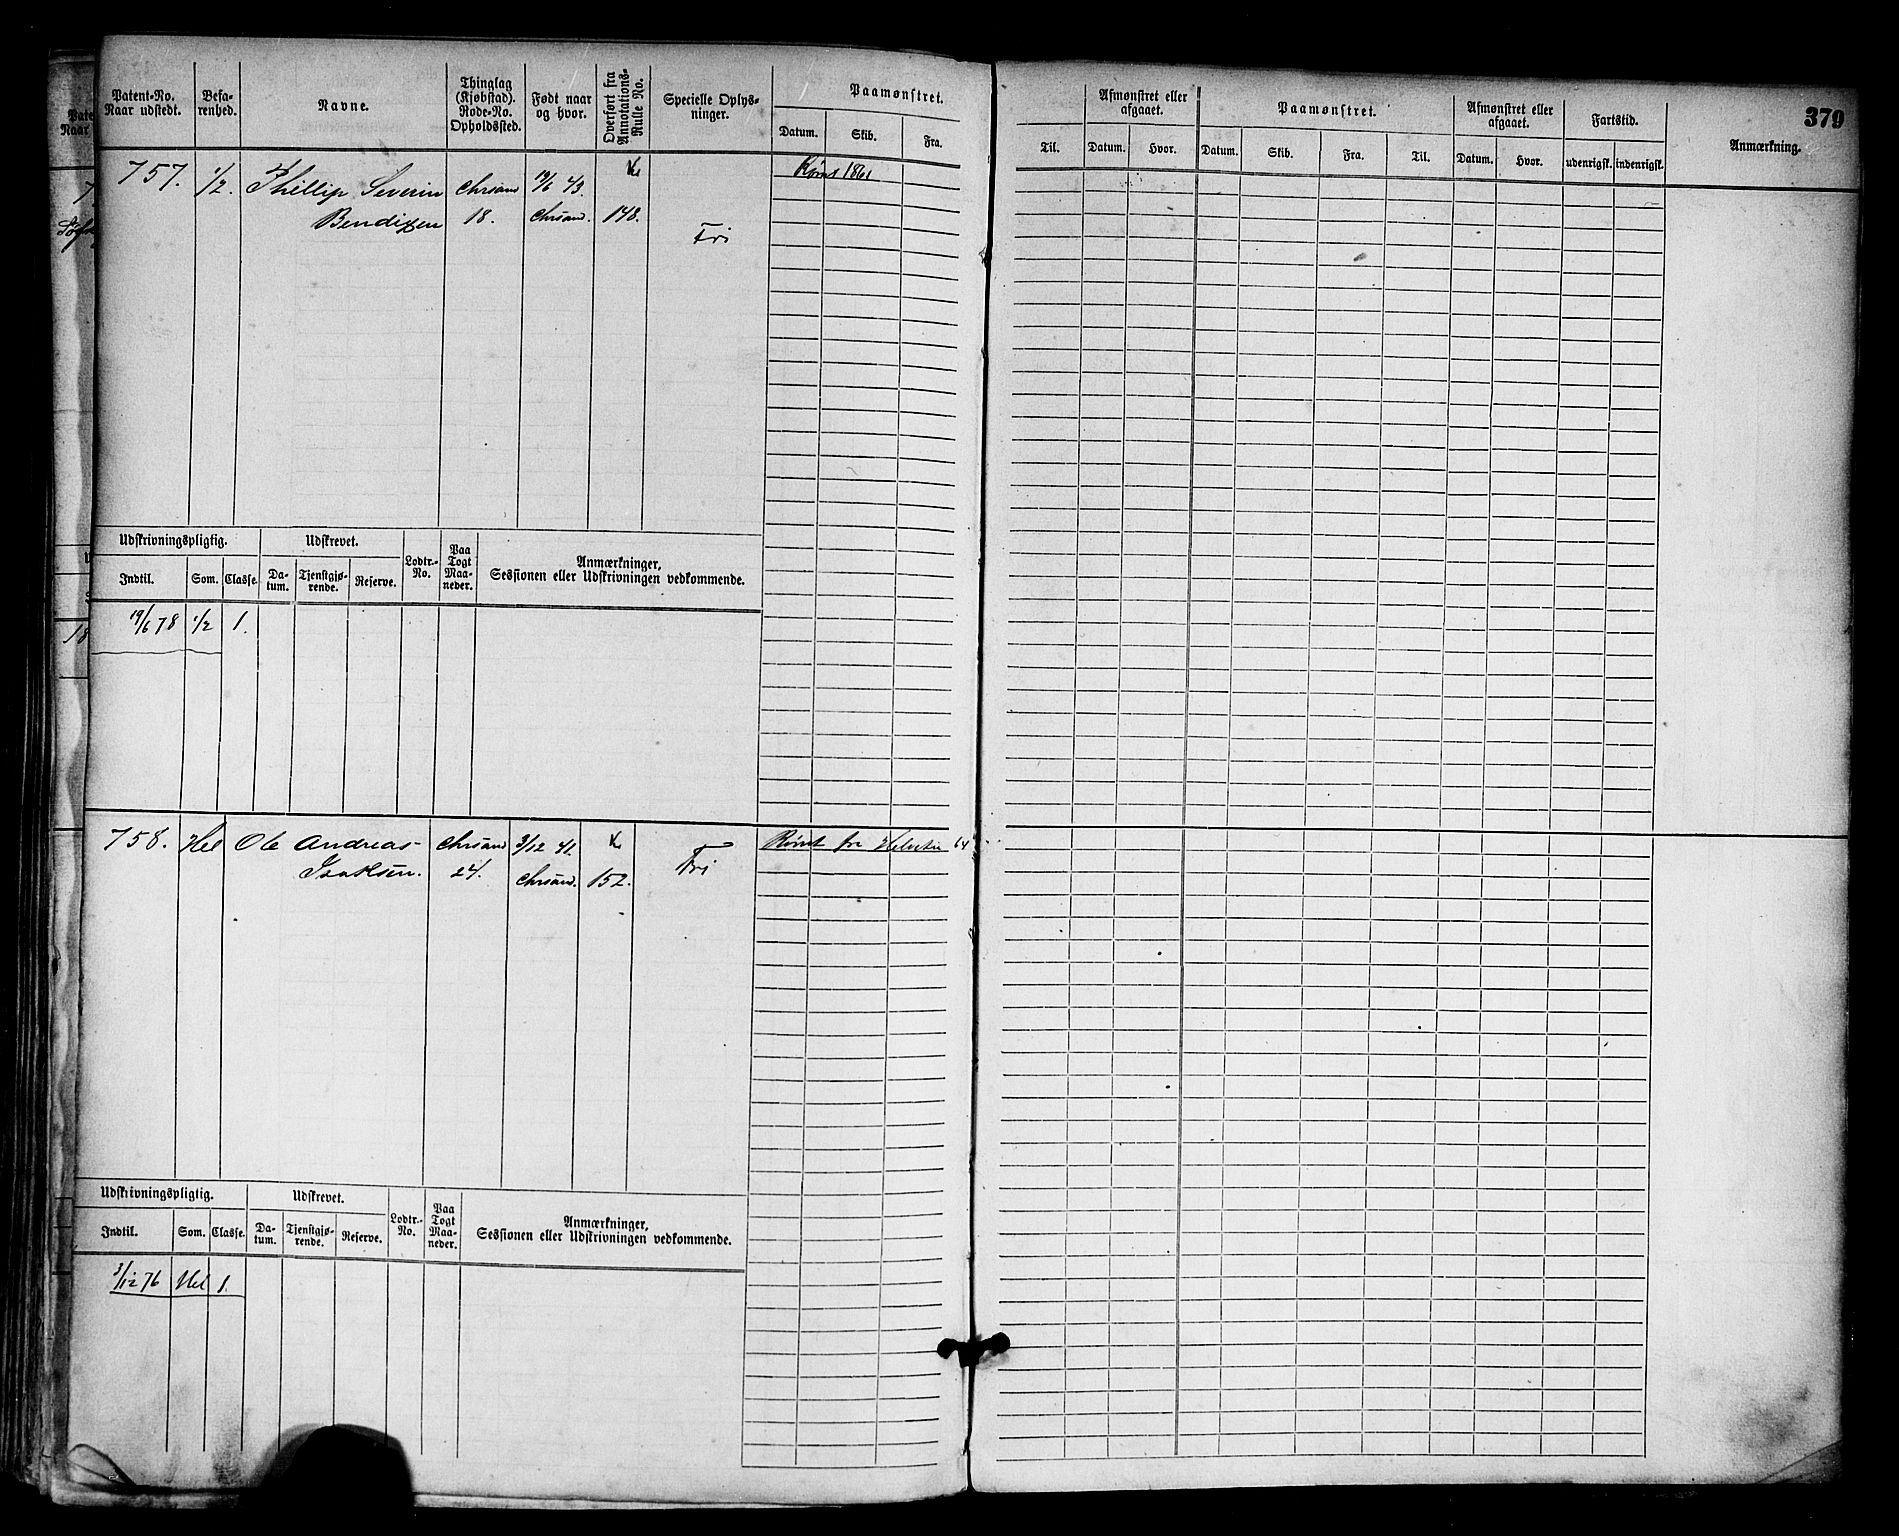 379
Patent-No. Naar udstedt. Befarenhed. Navne. Thinglag (Kjøbstad). Rode-No. Opholdssted. Født naar og hvor. Overført fra Annotations-Rulle No. Specielle Oplysninger. Paamønstret. Datum. Skib. Fra.
Til. Afmønstret eller afgaaet. Datum. Hvor. Paamønstret. Datum. Skib. Fra. Til. Afmønstret eller afgaaet. Datum. Hvor. Fartstid. udenrigsk. indenrigsk. Anmærkning.
757. 1/2. Phillip Severin Chrsand 19/6 43. Rømt 1861
Bendixen 18. Chrsand. 148. Fri
Udskrivningspligtig. Udskrevet. Lodtr.-No. Paa Togt Maaneder. Anmærkninger, Sessionen eller Udskrivningen vedkommende.
Indtil. Som. Classe. Datum. Tjenstgjørende. Reserve.
19/6 78 1/2 1.
758. Hel Ole Andreas Chrsand 3/12 41. Rømt fra Helvetia 64
Isaksen. 24. Chrsand. 152. Fri
Udskrivningspligtig. Udskrevet. Lodtr.-No. Paa Togt Maaneder. Anmærkninger, Sessionen eller Udskrivningen vedkommende.
Indtil. Som. Classe. Datum. Tjenstgjørende. Reserve.
3/12 76 Hel 1.